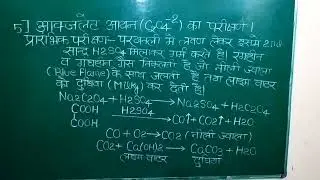 5] ऑक्जलेट आयन (C2O4^-2) का परीक्षण।
प्रारंभिक परीक्षण- परखनली में लवण लेकर इसमें 2ml
सान्द्र H2SO4 मिलाकर गर्म करते है। रंगहीन
व गंधहीन गैस निकलती है, जो नीली ज्वाला
(Blue Flame) के साथ जलती है तथा लाइम वाटर
को दुधिया (Milky) कर देती है।
Na2C2O4 + H2SO4 → Na2SO4 + H2C2O4
COOH H2SO4 → CO↑ + CO2↑ + H2O
COOH
CO + O2 → CO2 (नीली ज्वाला)
CO2 + Ca(OH)2 → CaCO3 + H2O
लाइम वाटर दुधिया